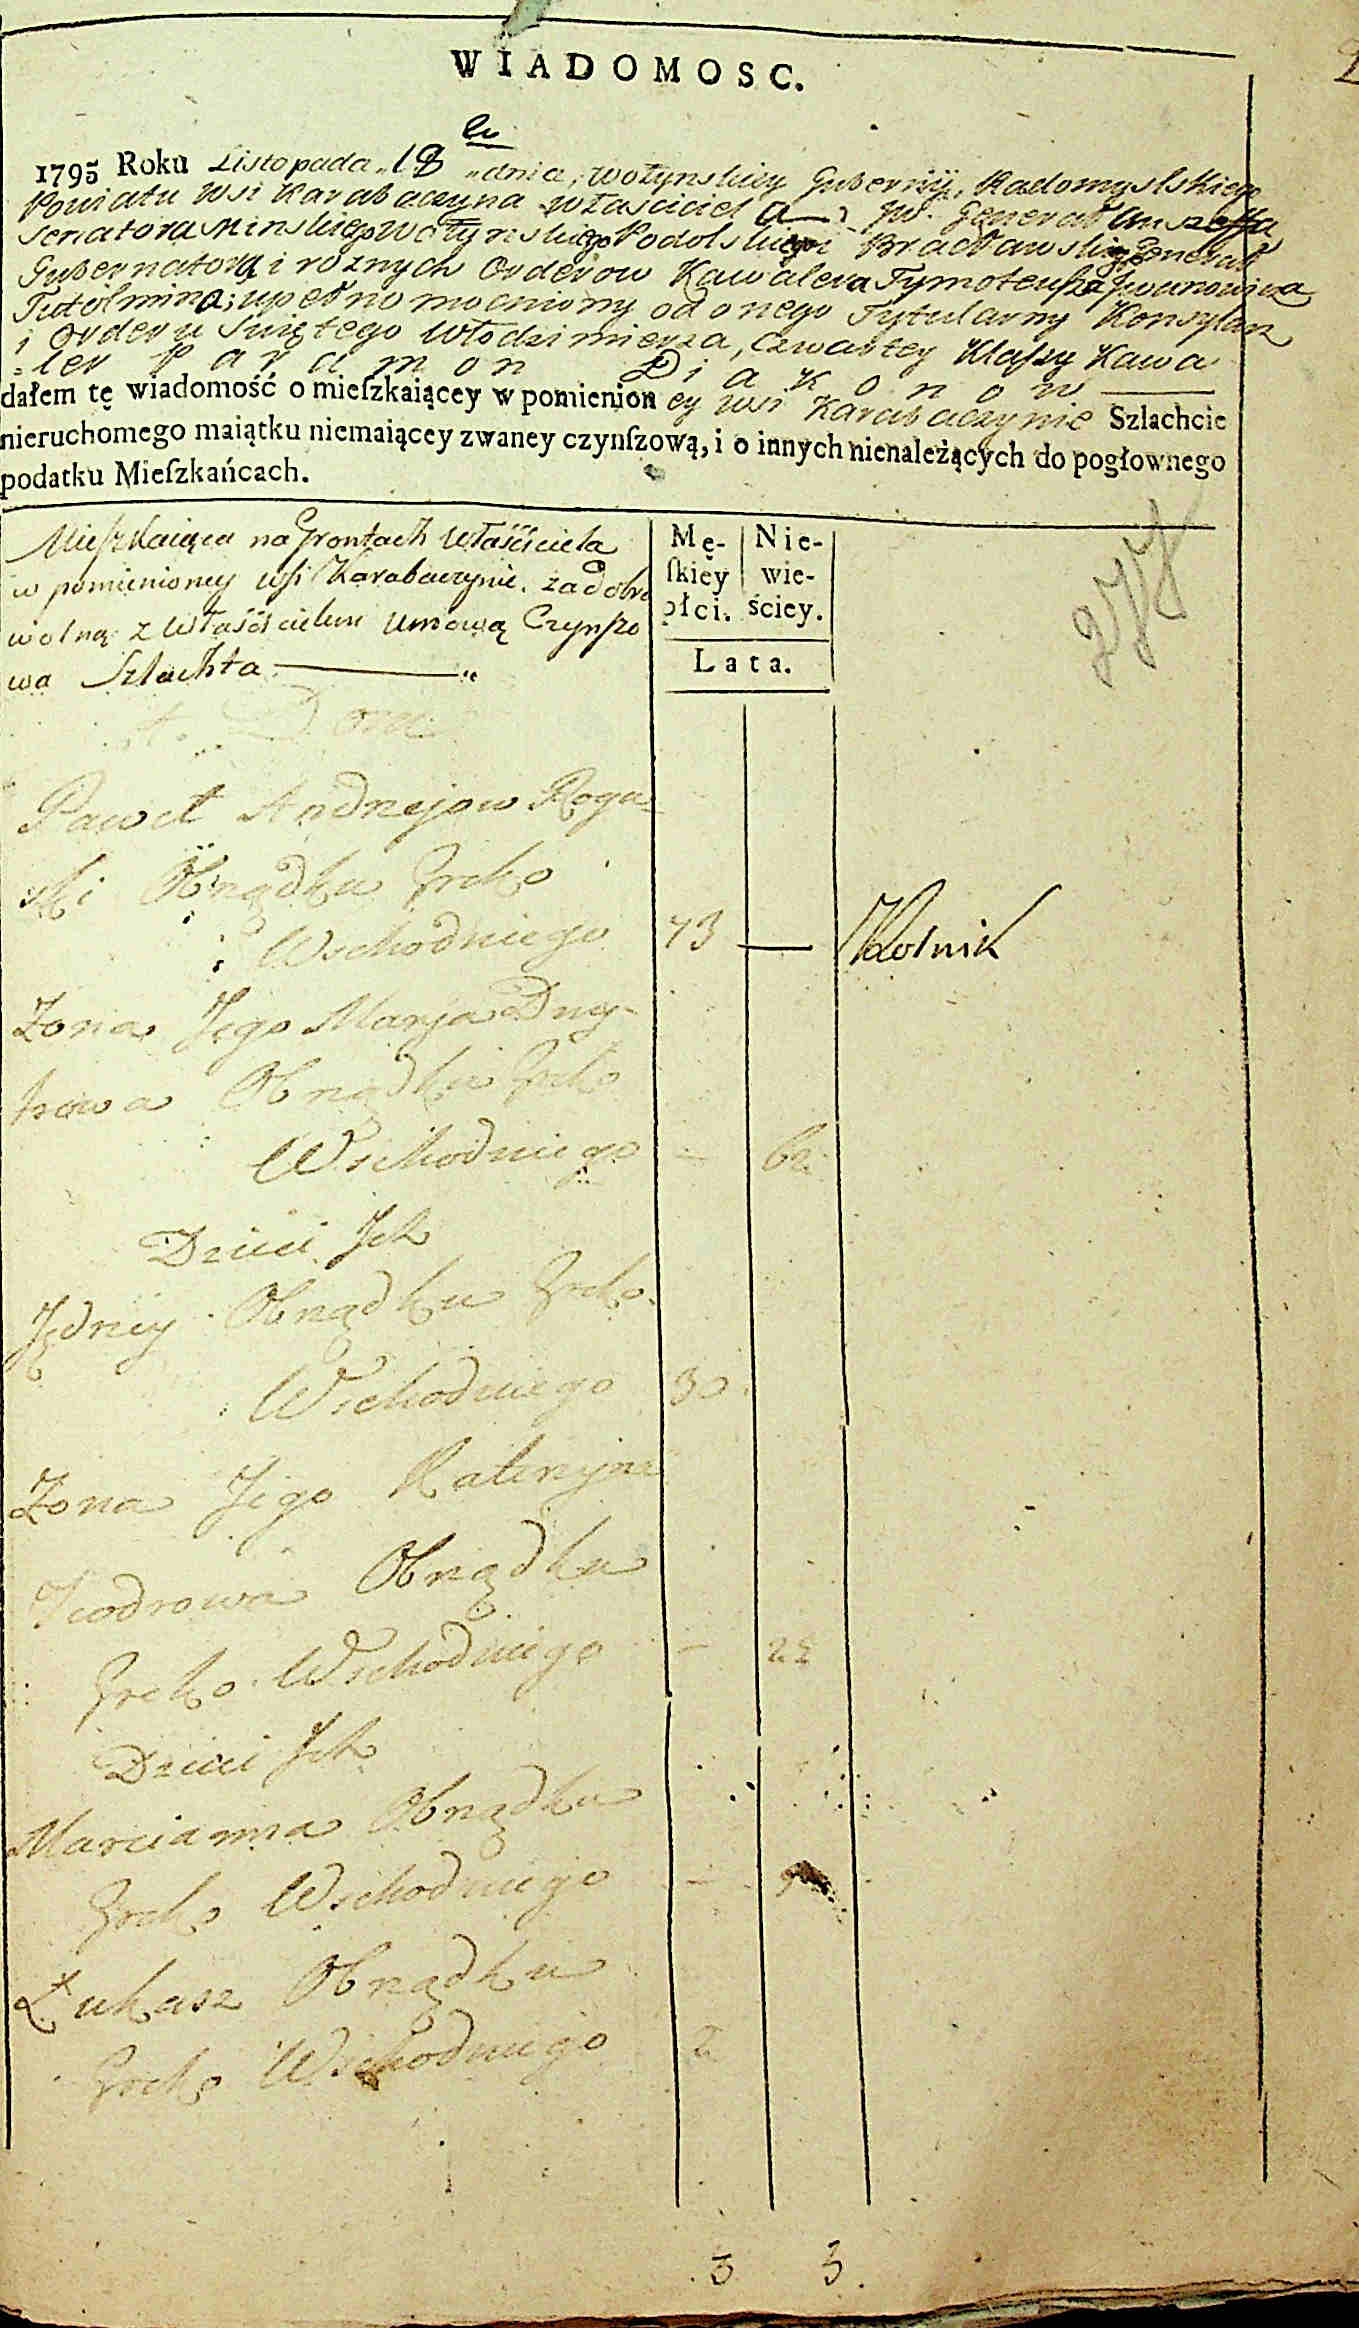 WIADOMOSC.
1795 Roku Listopada 18 dnia, Wołynskiey Guberniy, Radomyslskiego
Powiatu Wsi Karabaczyna właściciela JW. Generał Anszeffa
Senatora Minskiego Wołynskiego Podolskiego i Bracławskiego Generał
Gubernatora i roznych Orderow Kawalera Tymoteusza Jwanowicza
Tutolmina; upełnomocniony od onego Tytularny Konsylarz
i Orderu Swiętego Włodzimierza, czwartey Klassy Kawa
=ler Paramon Diakonow
dałem tę wiadomość o mieſzkaiącey w pomienioney wsi Karabaczynie Szlachcie
nieruchomego maiątku niemaiącey zwaney czynſzową, i o innych nienależących do pogłownego
podatku Mieſzkańcach.
Mieszkaiąca na Grontach właściciela
w pomienioney wsi Karabaczynie. za dobro
wolną z właścicielem umową Czynszo
wa Szlachta
Mę- Nie-
ſkiey wie-
płci. ściey.
Lata.
277
Dom
Paweł Andrzejow Rogu
ski Obrządku Greko
Wschodniego 73 — Rolnik
Zona Jego Marja Dmy-
trowa Obrządku Greko
Wschodniego - 62
Dzieci Jch
Jędrzey Obrządku Greko
Wschodniego 30
Zona Jego Kateryna
Teodrowa Obrządku
Greko Wschodniego - 22
Dzieci Jch
Marcianna Obrządku
Greko Wschodniego -
Łukasz Obrządku
Greko Wschodniego 2
3 3.